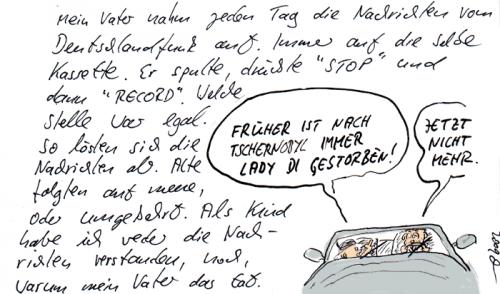 Mein Vater nahm jeden Tag die Nachrichten vom
Deutschlandfunk auf. Immer auf die selbe
Kassette. Er spulte, drückte "STOP" und
dann "RECORD". Welche
Stelle war egal.
So lösten sich die
Nachrichten ab. Alte
folgten auf neue,
oder umgekehrt. Als Kind
habe ich weder die Nach-
richten verstanden, noch,
warum mein Vater das tat.
FRÜHER IST NACH
TSCHERNOBYL IMMER
LADY DI GESTORBEN!
JETZT
NICHT
MEHR.